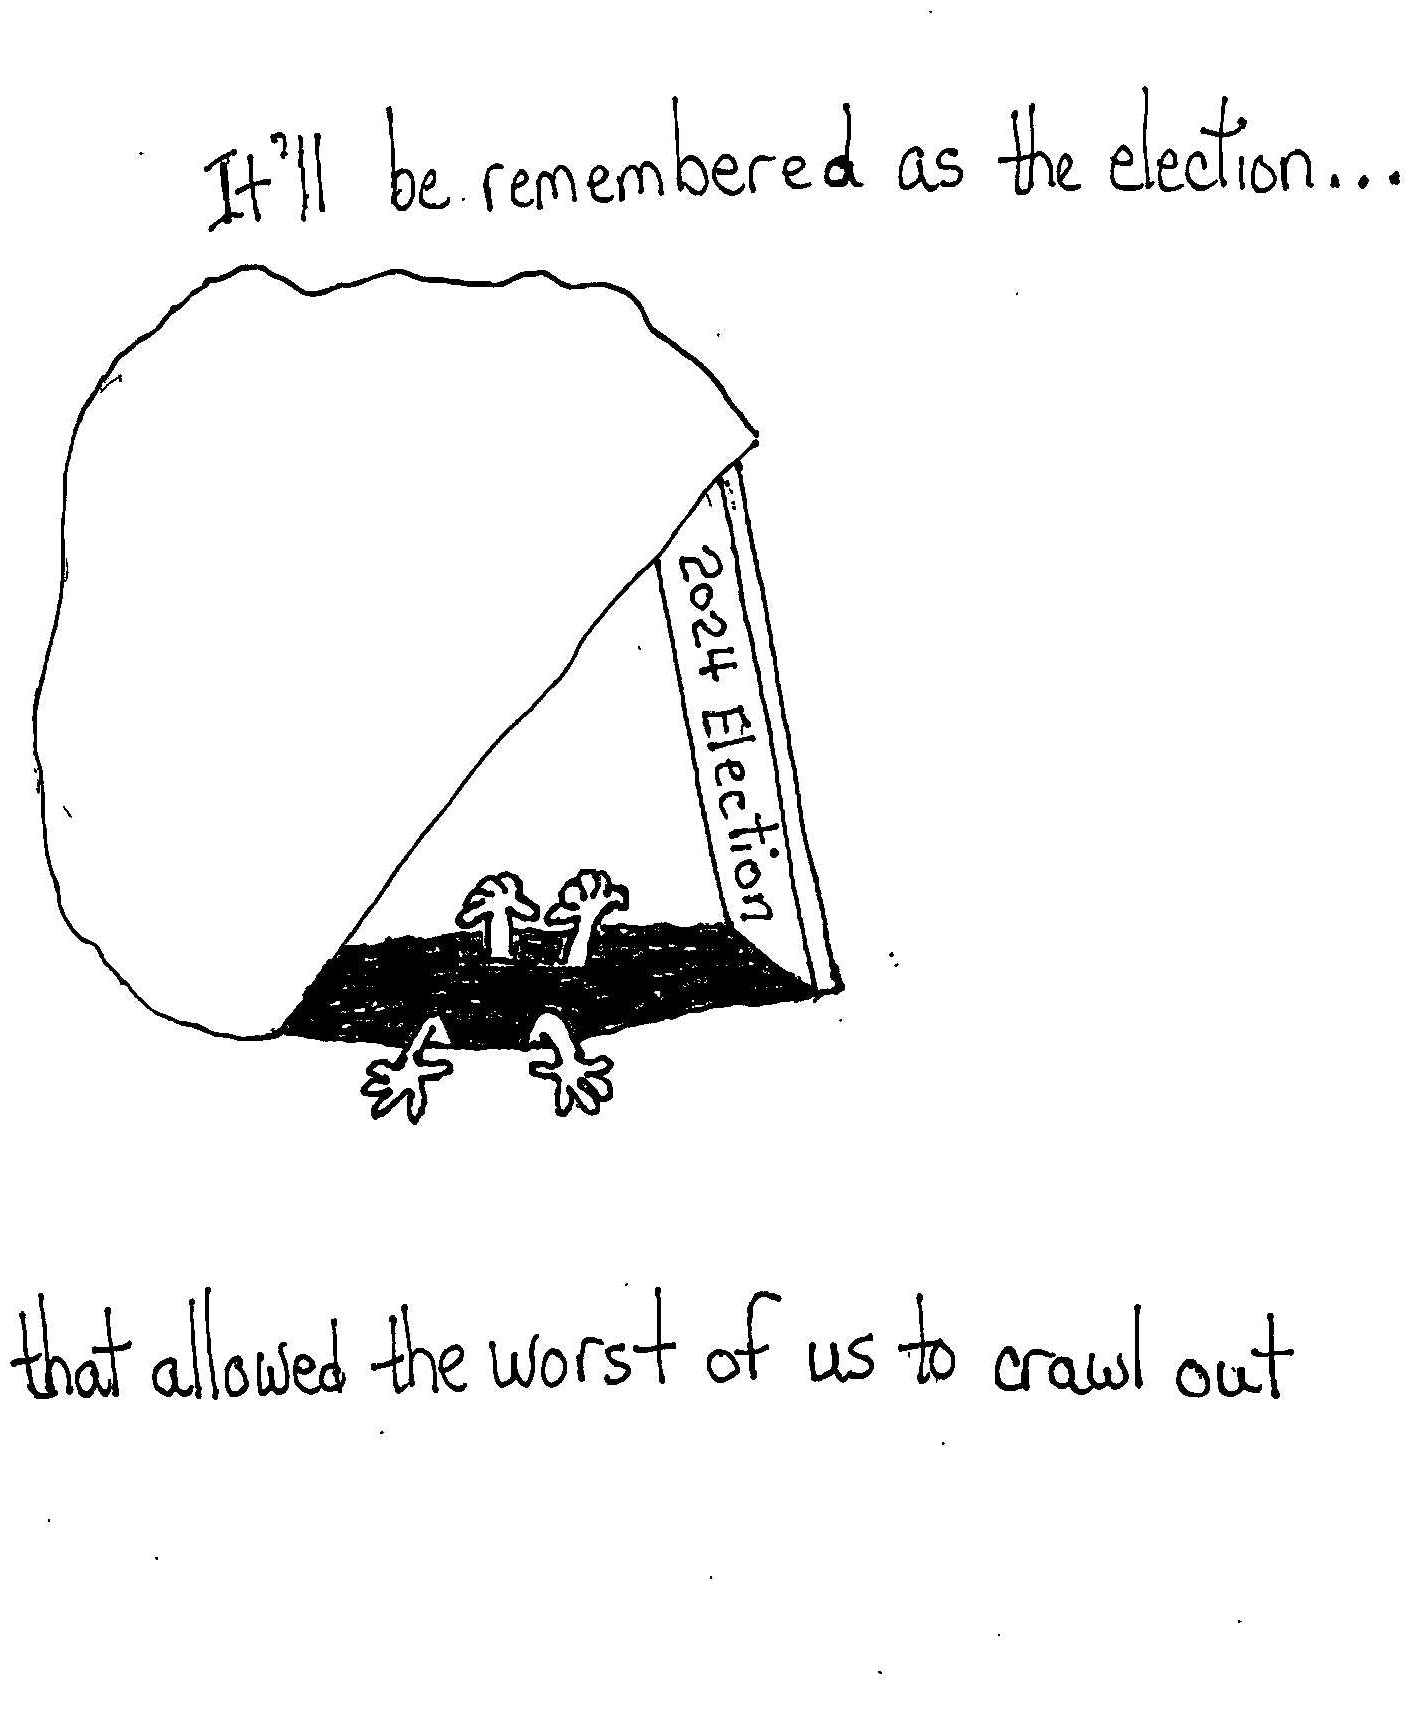 It'll be remembered as the election...
2024 Election
that allowed the worst of us to crawl out